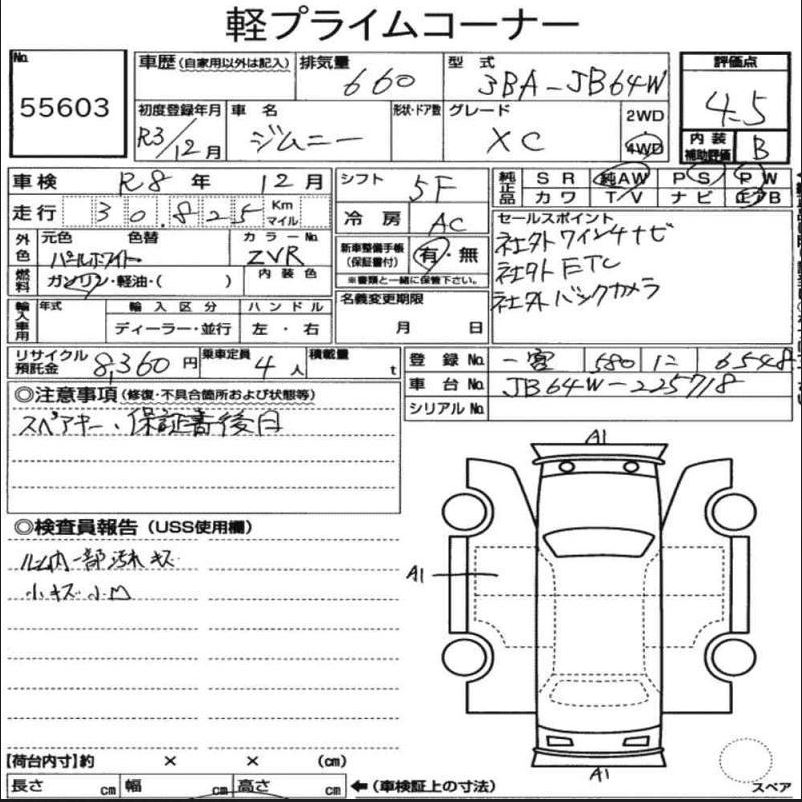 軽プライムコーナー
No. 55603
車歴(自家用以外は記入) 排気量 660 型式 3BA-JB64W 評価点 4.5
初度登録年月 R3/12月 車名 ジムニー 形状・ドア数 グレード XC 2WD 4WD 内装補助評価 B
車検 R8年 12月 シフト 5F 純正品 SR 純AW PS PW
走行 30.825 Km マイル 冷房 AC カワ T/V ナビ 正AB
外色 元色 パールホワイト 色替 カラーNo. ZVR 新車整備手帳(保証書付) 有・無 セールスポイント
社外ワインナビ
社外ETC
社外バックカメラ
燃料 ガソリン・軽油・( ) 内装色 ※書類と一緒に保管下さい。
輸入車用 年式 輸入区分 ハンドル 名義変更期限
ディーラー・並行 左・右 月 日
リサイクル預託金 8,360円 乗車定員 4人 積載量 t 登録No. 580 6548
車台No. JB64W-225718
シリアルNo.
◎注意事項(修復・不具合箇所および状態等)
スペアキー、保証書後日
◎検査員報告(USS使用欄)
ルーム内一部汚れキズ
小キズ小凹
A1
A1
A1
【荷台内寸】約 × × (cm)
長さ cm 幅 cm 高さ cm ←(車検証上の寸法) スペア